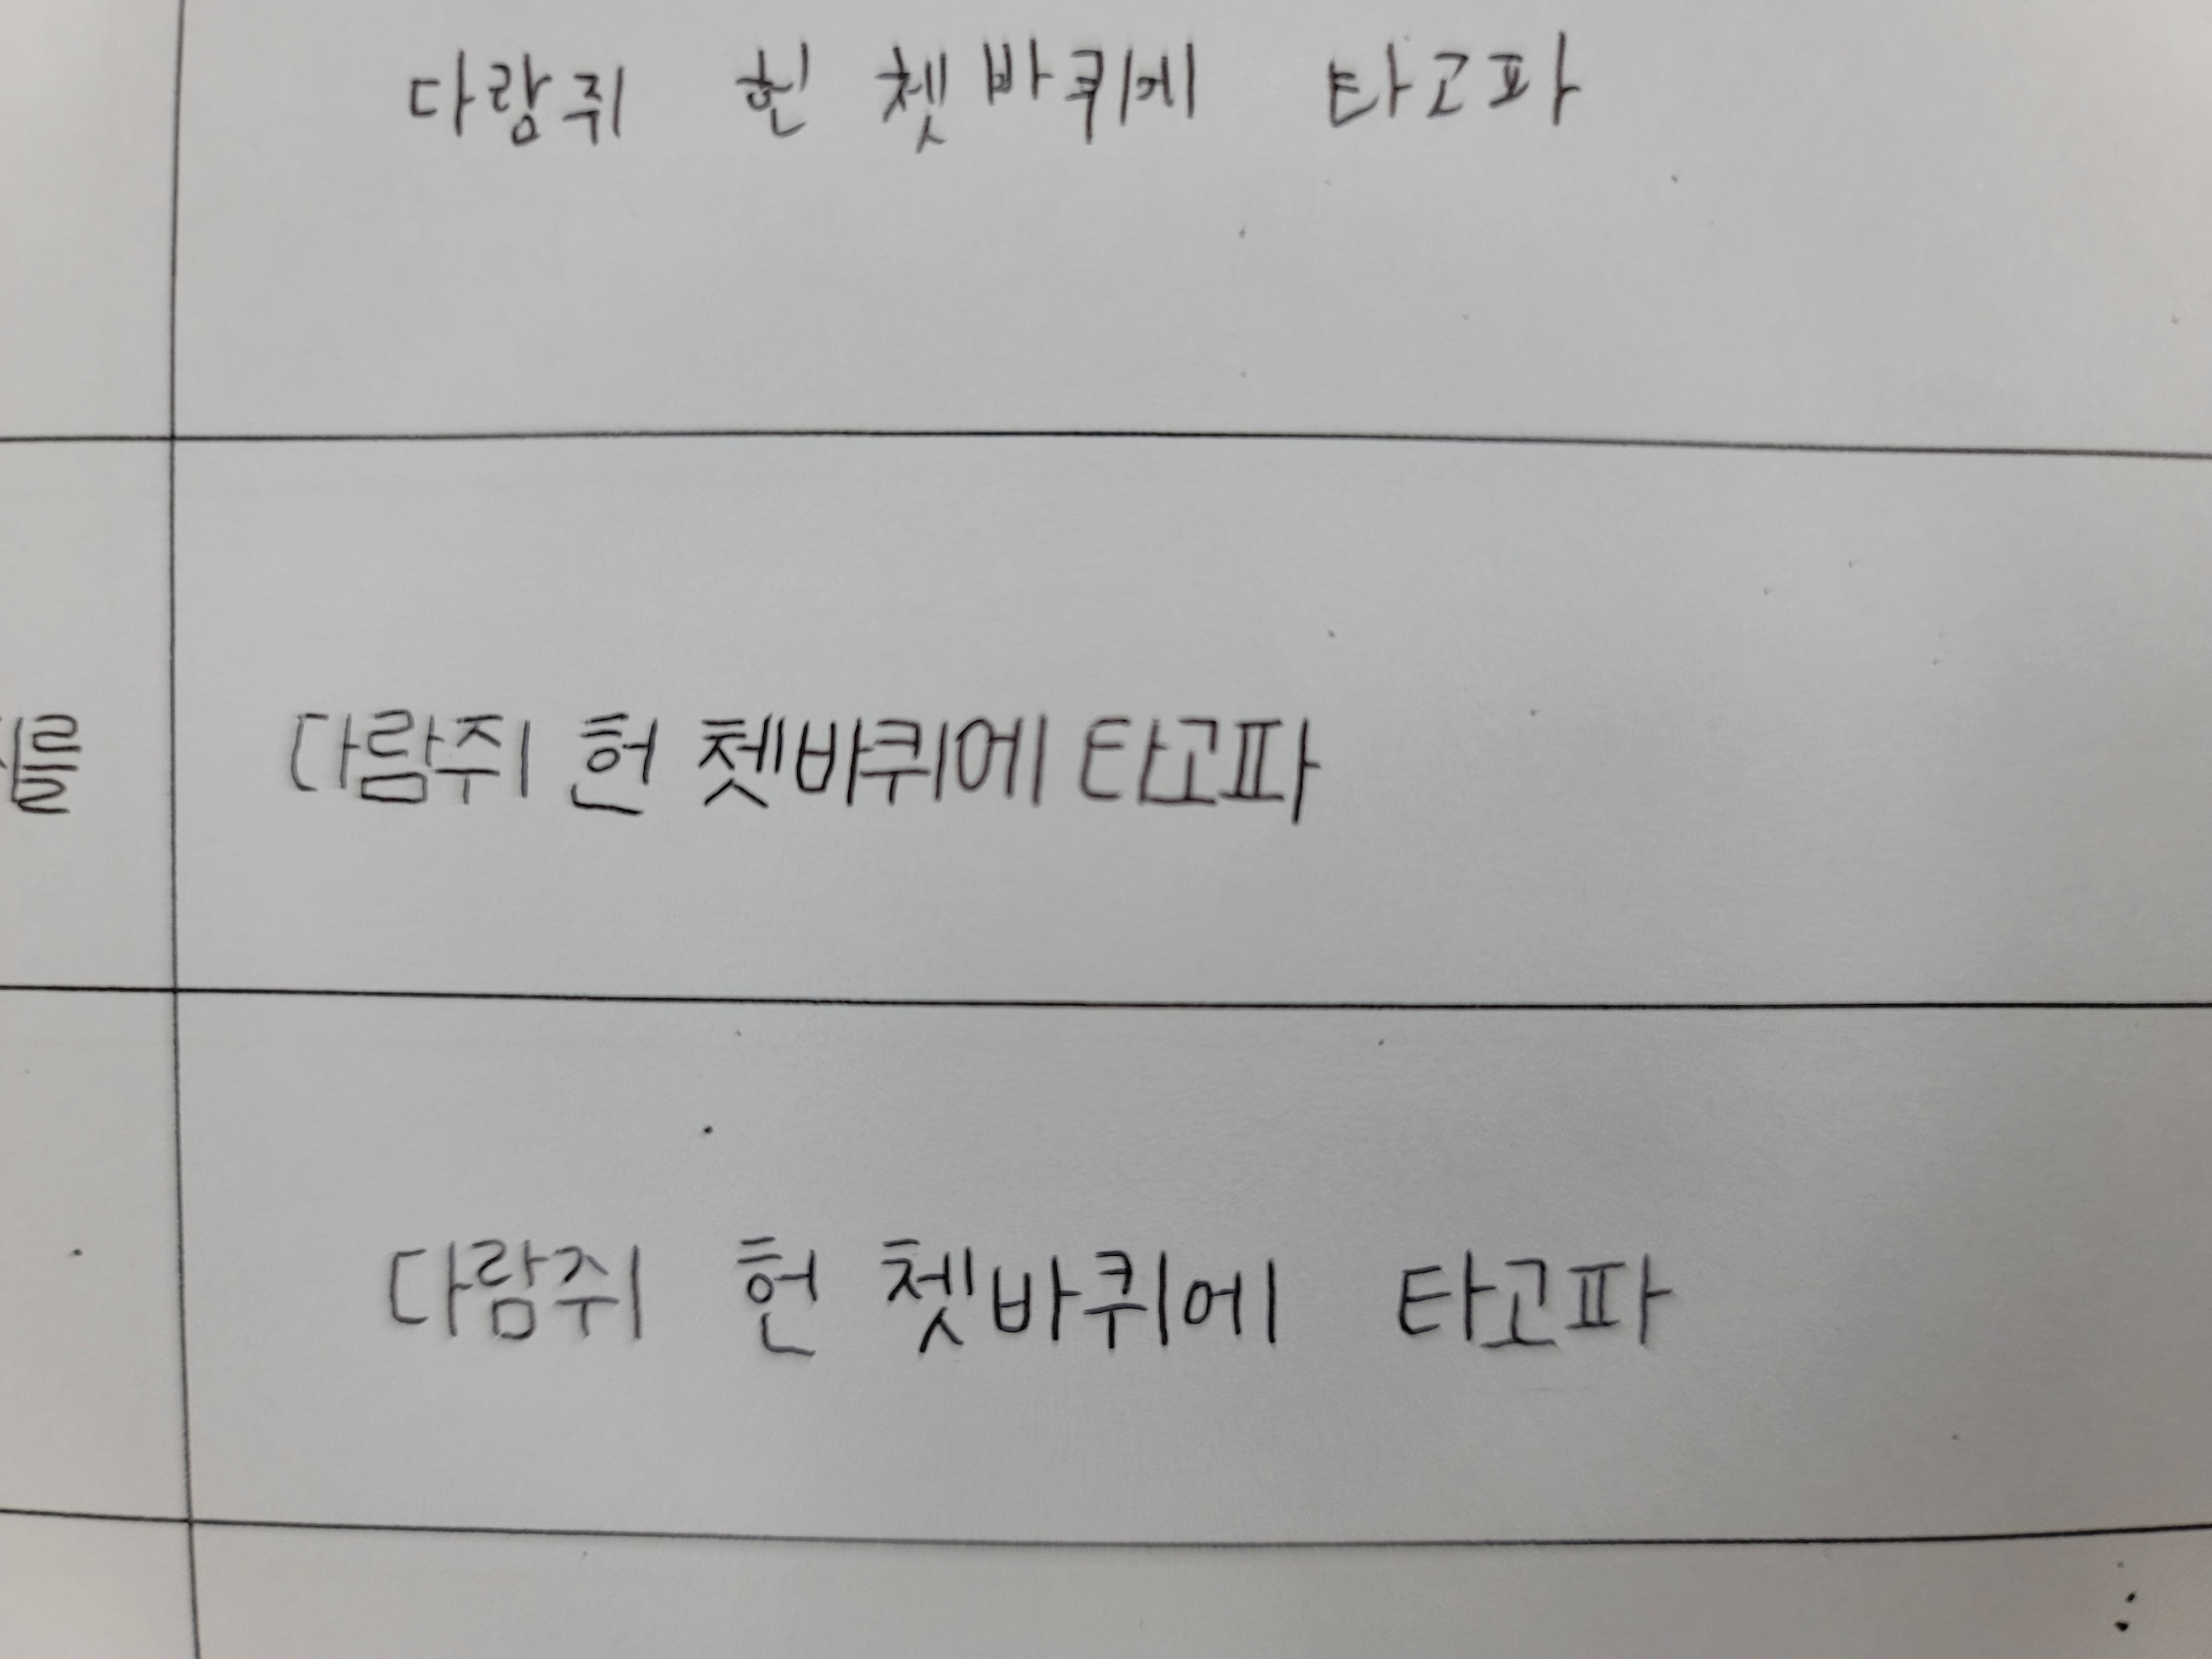 다람쥐 헌 쳇바퀴에 타고파
를 다람쥐 헌 쳇바퀴에 타고파
다람쥐 헌 쳇바퀴에 타고파